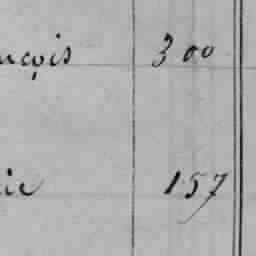 nçois 300
ie 157